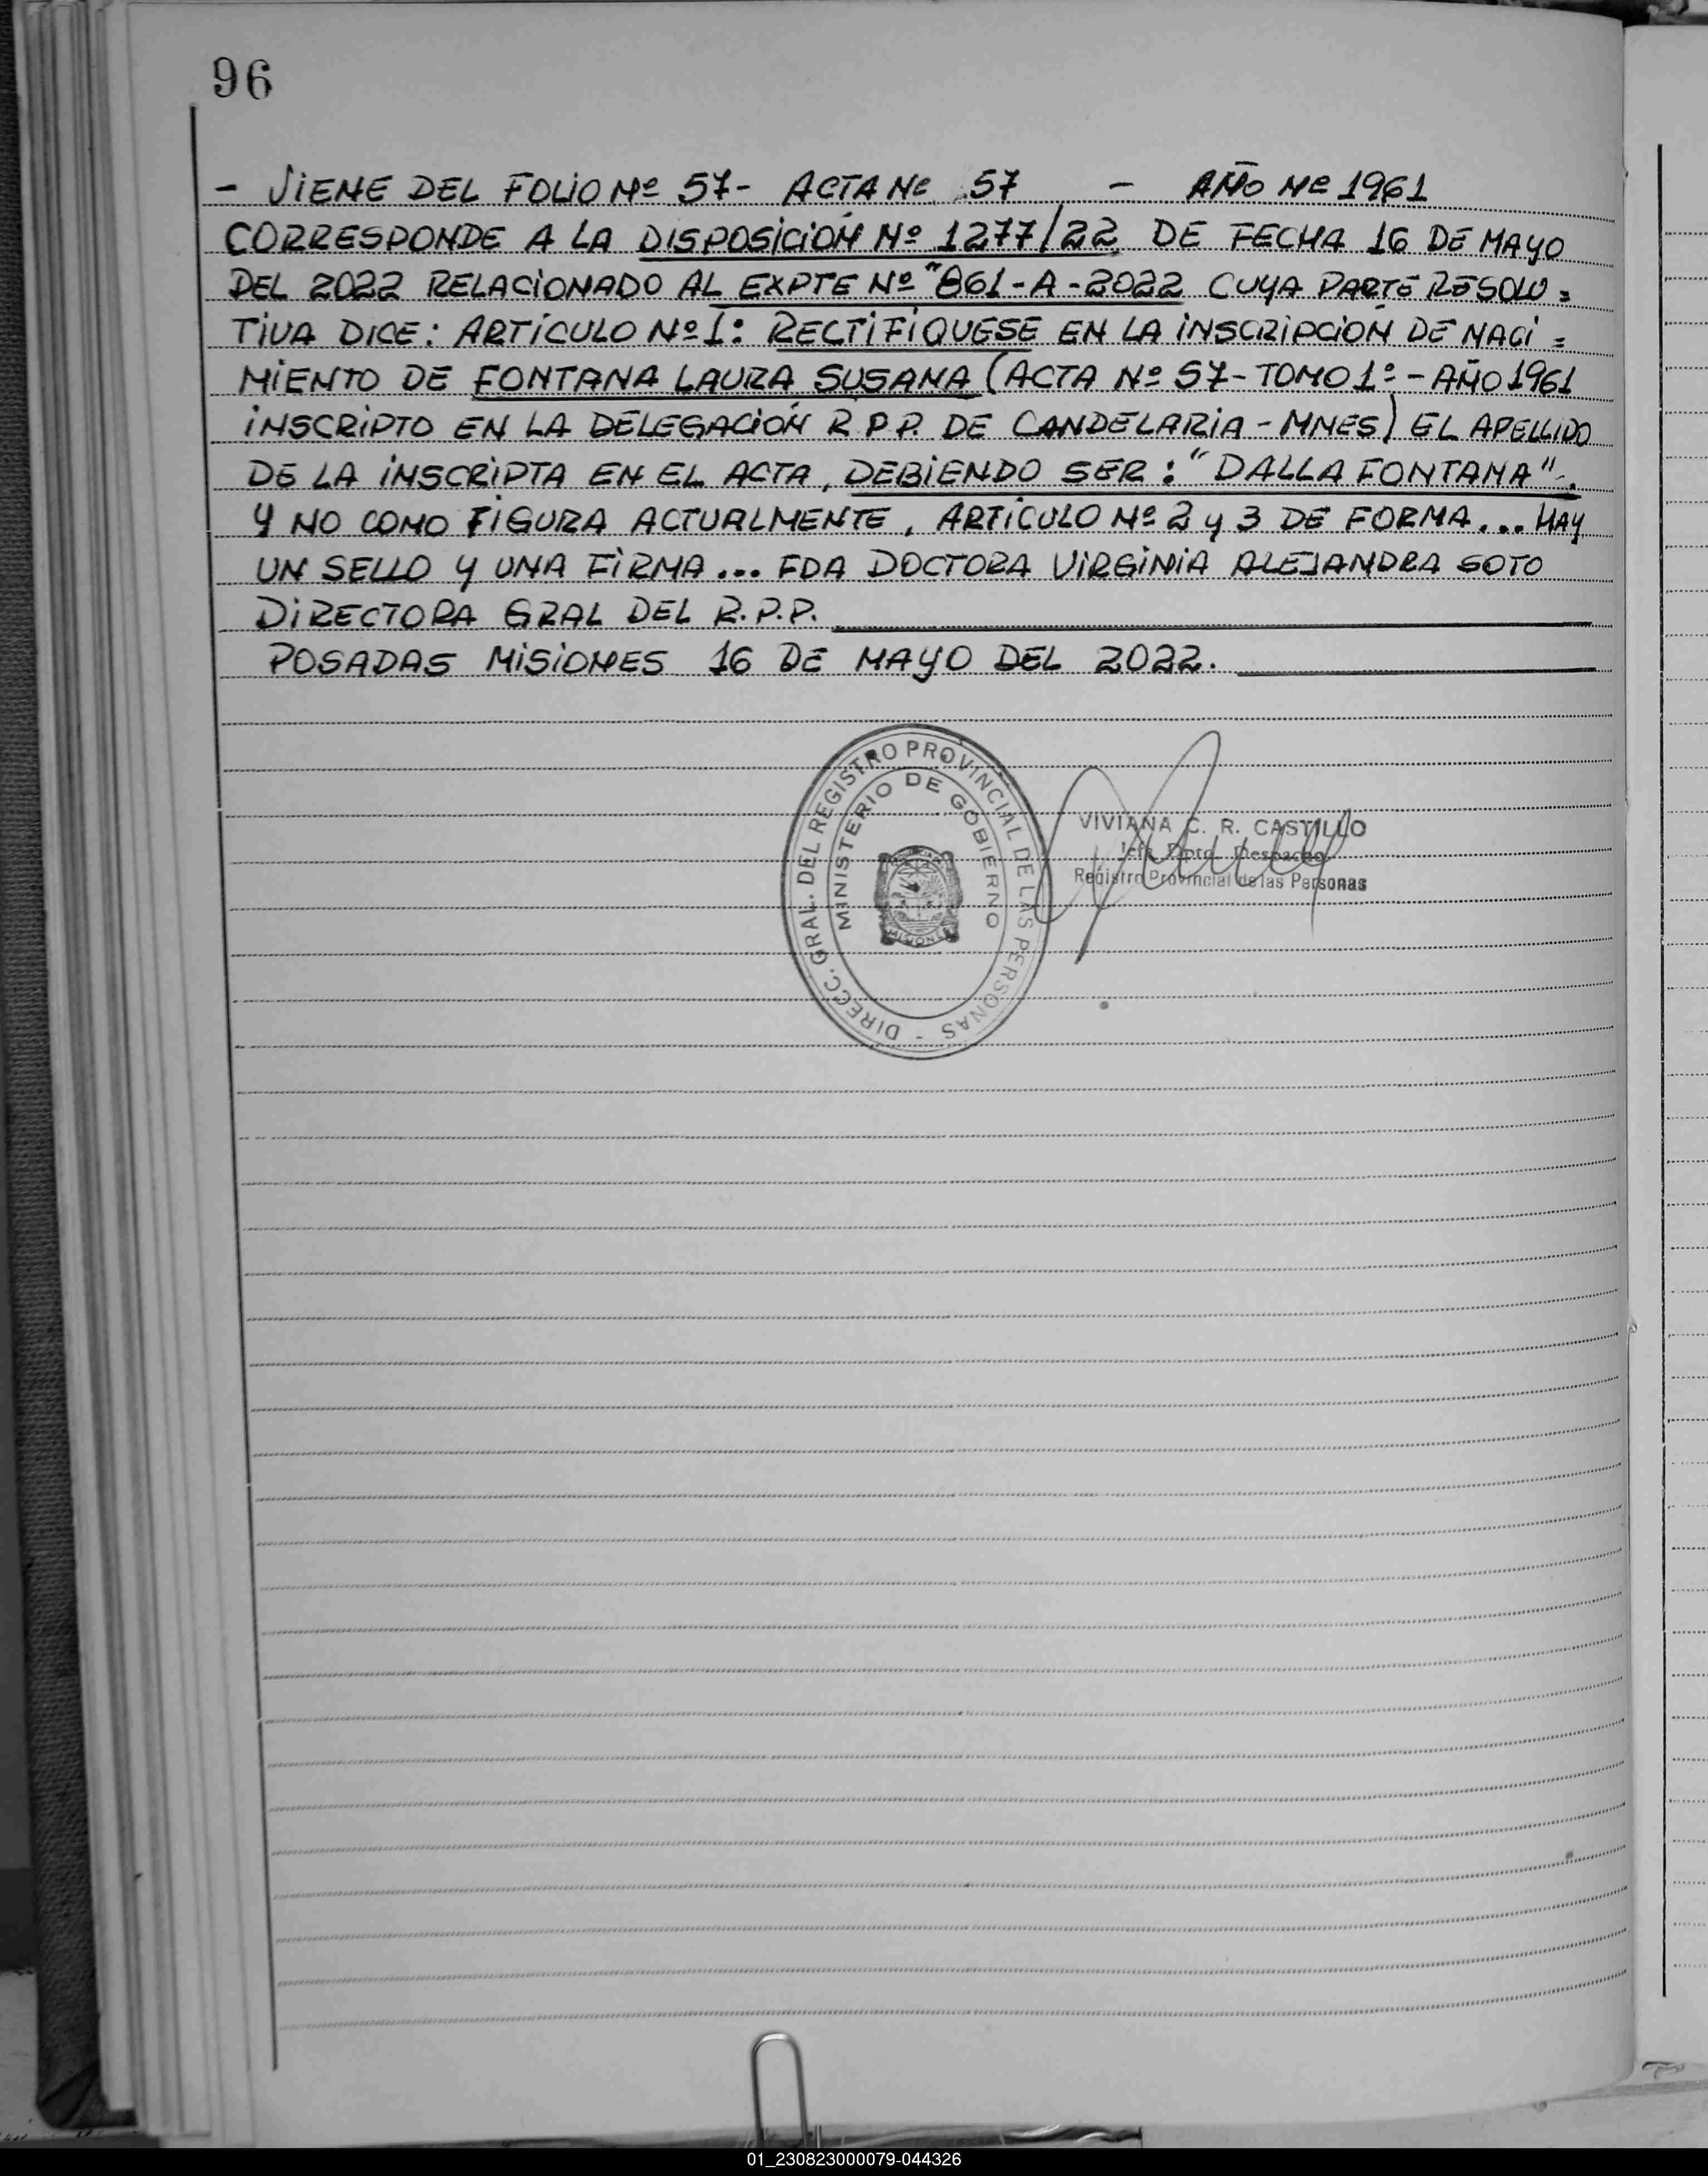 96
- VIENE DEL FOLIO Nº 57- ACTA Nº 57 - AÑO Nº 1961
CORRESPONDE A LA DISPOSICIÓN Nº 1277/22 DE FECHA 16 DE MAYO
DEL 2022 RELACIONADO AL EXPTE Nº "861-A-2022 CUYA PARTE RESOLU=
TIVA DICE: ARTÍCULO Nº 1: RECTIFÍQUESE EN LA INSCRIPCIÓN DE NACI=
MIENTO DE FONTANA LAURA SUSANA (ACTA Nº 57-TOMO 1º-AÑO 1961
INSCRIPTO EN LA DELEGACIÓN R P P. DE CANDELARIA - MNES) EL APELLIDO
DE LA INSCRIPTA EN EL ACTA, DEBIENDO SER: "DALLA FONTANA".
Y NO COMO FIGURA ACTUALMENTE, ARTÍCULO Nº 2 y 3 DE FORMA... HAY
UN SELLO Y UNA FIRMA... FDA DOCTORA VIRGINIA ALEJANDRA SOTO
DIRECTORA GRAL DEL R.P.P.
POSADAS MISIONES 16 DE MAYO DEL 2022.
DIRECC. GRAL. DEL REGISTRO PROVINCIAL DE LAS PERSONAS -
MINISTERIO DE GOBIERNO
MISIONES
VIVIANA C. R. CASTILLO
Jefa Dpto. Despacho
Registro Provincial de las Personas
01_230823000079-044326